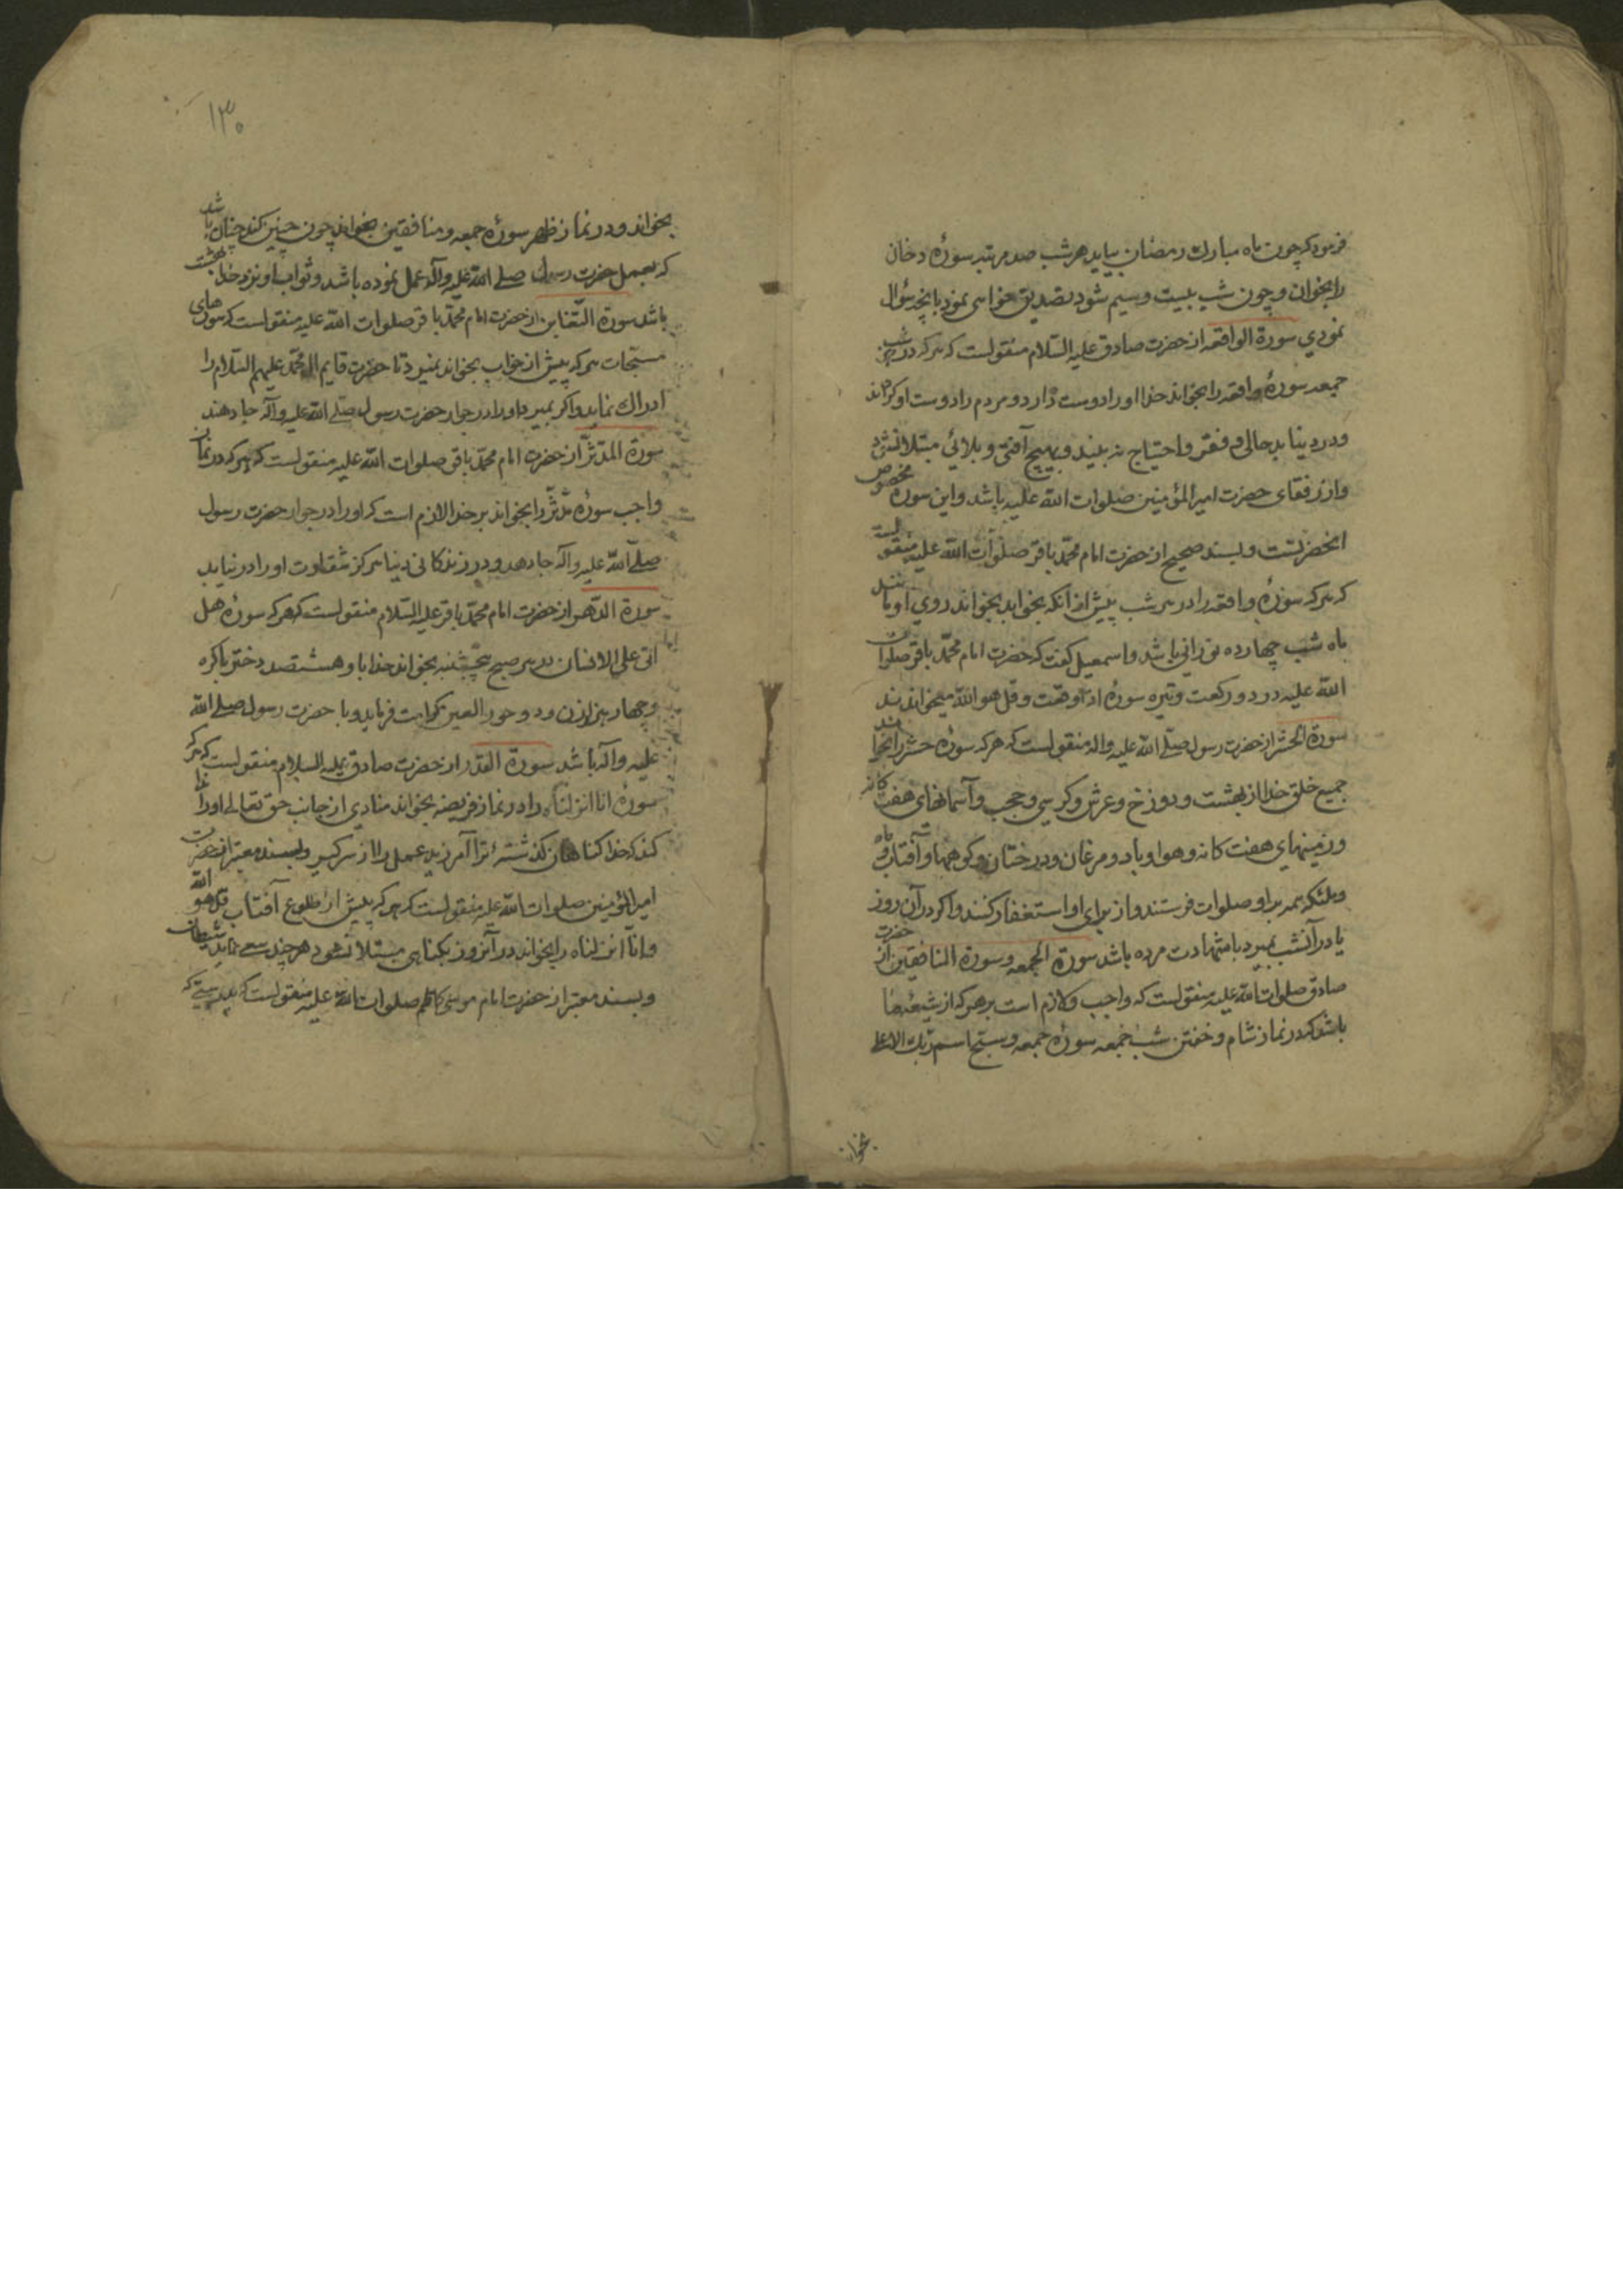 فرمود که چون ماه مبارك رمضان بیاید هر شب صد مرتبه سورۀ دخان
را بخوان و چون شب بیست و سیم شود تصدیق خواهی نمود بانچه سؤال
نمودي سورة الواقعه از حضرت صادق علیه السّلام منقولست که هر که در هر شب
جمعه سورۀ واقعه را بخواند خدا او را دوست دارد و مردم را دوست او کرداند
و در دنیا بدحالی و فقر و احتیاج نه بیند و بهیچ آفتی و بلائی مبتلا نشود
و از رفقای حضرت امیر المؤمنین صلوات الله علیه باشد و این سوره مخصوص
انحضرتست و بسند صحیح از حضرت امام محمّد باقر صلوات الله علیه منقولست
که هر که سورۀ واقعه را در هر شب پیش از انکه بخوابد بخواند روي او مانند
ماه شب چهارده نورانی باشد و اسمعیل کفت که حضرت امام محمّد باقر صلوات
الله علیه در دو رکعت وتیره سورۀ اذا وقعت و قل هو الله میخواندند
سورة الحشر از حضرت رسول صلّی الله علیه واله منقولست که هر که سورۀ حشر را بخواند
جمیع خلق خدا از بهشت و دوزخ و عرش و کرسی و حجب و آسمانهای هفت کانه
و زمینهای هفت کانه و هوا و باد و مرغان و درختان و کوهها و آفتاب و ماه
و ملئکه همه بر او صلوات فرستند و از برای او استغفار کنند و اکر در آن روز
یا در آنشب بمیرد با شهادت مرده باشد سورة الجمعه و سورة المنافقین از حضرت
صادق صلوات الله علیه منقولست که واجب و لازم است بر هر که از شیعه ما
باشد که در نماز شام و خفتن شب جمعه سورۀ جمعه و سبّح اسم ربّك الاعلی
بخواند
۱۳۰
بخواند و در نماز ظهر سورۀ جمعه و منافقین بخواند چون چنین کند چنان باشد
که بعمل حضرت رسول صلی الله علیه وآله عمل نموده باشد و ثواب او نزد خدا بهشت
باشد سورة التّغابن از حضرت امام محمّد باقر صلوات الله علیه منقولست که سورهای
مسبّحات هر که پیش از خواب بخواند نمیرد تا حضرت قایم ال محمّد علیهم السّلام را
ادراك نماید و اکر بمیرد او را در جوار حضرت رسول صلّی الله علیه وآله جا دهند
سورة المدّثّر از حضرت امام محمّد باقر صلوات الله علیه منقولست که هر که در نماز
واجب سورۀ مدّثّر را بخواند بر خدا لازم است که او را در جوار حضرت رسول
صلّی الله علیه وآله جا دهد و در زندکانی دنیا هرکز شقاوت او را در نیابد
سورة الدّهر از حضرت امام محمّد باقر علیه السّلام منقولست که هر که سورۀ هل
اتی علی الانسان در هر صبح پنجشنبه بخواند خدا باو هشتصد دختر باکره
و چهار هزار زن و دو حور العین کرامت فرماید و با حضرت رسول صلی الله
علیه وآله باشد سورة القدر از حضرت صادق علیه السلام منقولست که هر که
سورۀ انا انزلناه را در نماز فریضه بخواند منادي از جانب حق تعالی او را ندا
کند که خدا کناهان کذشتۀ ترا آمرزید عمل را از سر کیر و بسند معتبر از حضرت
امیر المؤمنین صلوات الله علیه منقولست که هر که پیش از طلوع آفتاب قل هو الله
و انّا انزلناه را بخواند در آنروز بکناهی مبتلا نشود هر چند سعی نماید شیطان
و بسند معتبر از حضرت امام موسی کاظم صلوات الله علیه منقولست که بدرستی که